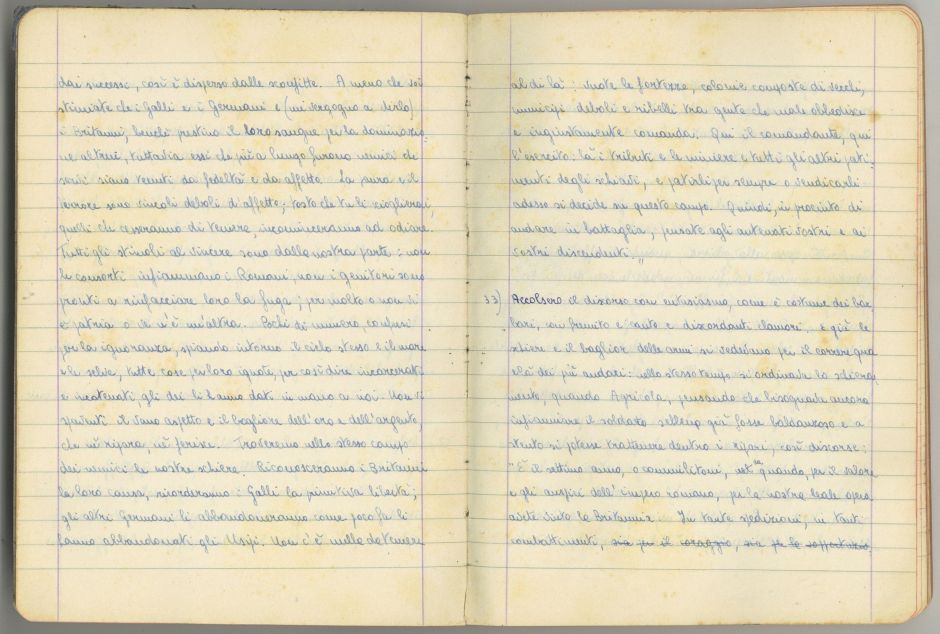 dai successi, così è disperso dalle sconfitte. A meno che voi
stimiate che i Galli e i Germani e (mi vergogno a dirlo)
i Britanni, benchè prestino il loro sangue per la dominazio
ne altrui, tuttavia essi che più a lungo furono nemici che
servi siano tenuti da fedeltà e da affetto. La paura e il
terrore sono vincoli deboli d'affetto; tosto che tu li scioglierai,
quelli che cesseranno di temere, incominceranno ad odiare.
Tutti gli stimoli al vincere sono dalla nostra parte: non
le consorti infiammano i Romani, non i genitori sono
pronti a rinfacciare loro la fuga; per molti o non vi
è patria o ve n'è un'altra. Pochi di numero, confusi
per la ignoranza, spiando intorno il cielo stesso e il mare
e le selve, tutte cose per loro ignote, per così dire incarcerati
e incatenati, gli dei li hanno dati in mano a noi. Non vi
spaventi il vano aspetto e il bagliore dell'oro e dell'argento,
che nè ripara, nè ferisce. Troveremo nello stesso campo
dei nemici le nostre schiere. Riconosceranno i Britanni
la loro causa, ricorderanno i Galli la primitiva libertà;
gli altri Germani li abbandoneranno come poco fa li
hanno abbandonati gli Usipi. Non c'è nulla da temere
al di là: vuote le fortezze, colonie composte di vecchi,
municipi deboli e ribelli tra gente che male obbedisce
e ingiustamente comanda. Qui il comandante, qui
l'esercito: là i tributi e le miniere e tutti gli altri pati
menti degli schiavi, e patirli per sempre o vendicarli
adesso si decide su questo campo. Quindi, in procinto di
andare in battaglia, pensate agli antenati vostri e ai
vostri discendenti."
33) Accolsero il discorso con entusiasmo, come è costume dei bar
bari, con fremito e canto e discordanti clamori. e già le
schiere e il baglior delle armi si vedevano per il correre qua
e là dei più audaci: nello stesso tempo si ordinava lo schiera
mento, quando Agricola, pensando che bisognava ancora
infiammare il soldato sebbene già fosse baldanzoso e a
stento si potesse trattenere dentro i ripari, così discorse:
"È il settimo anno, o commilitoni, da quando, per il valore
e gli auspici dell'impero romano, per la nostra leale opera
avete vinto la Britannia. In tante spedizioni, in tanti
combattimenti, sia per il coraggio, sia per la sopportazio